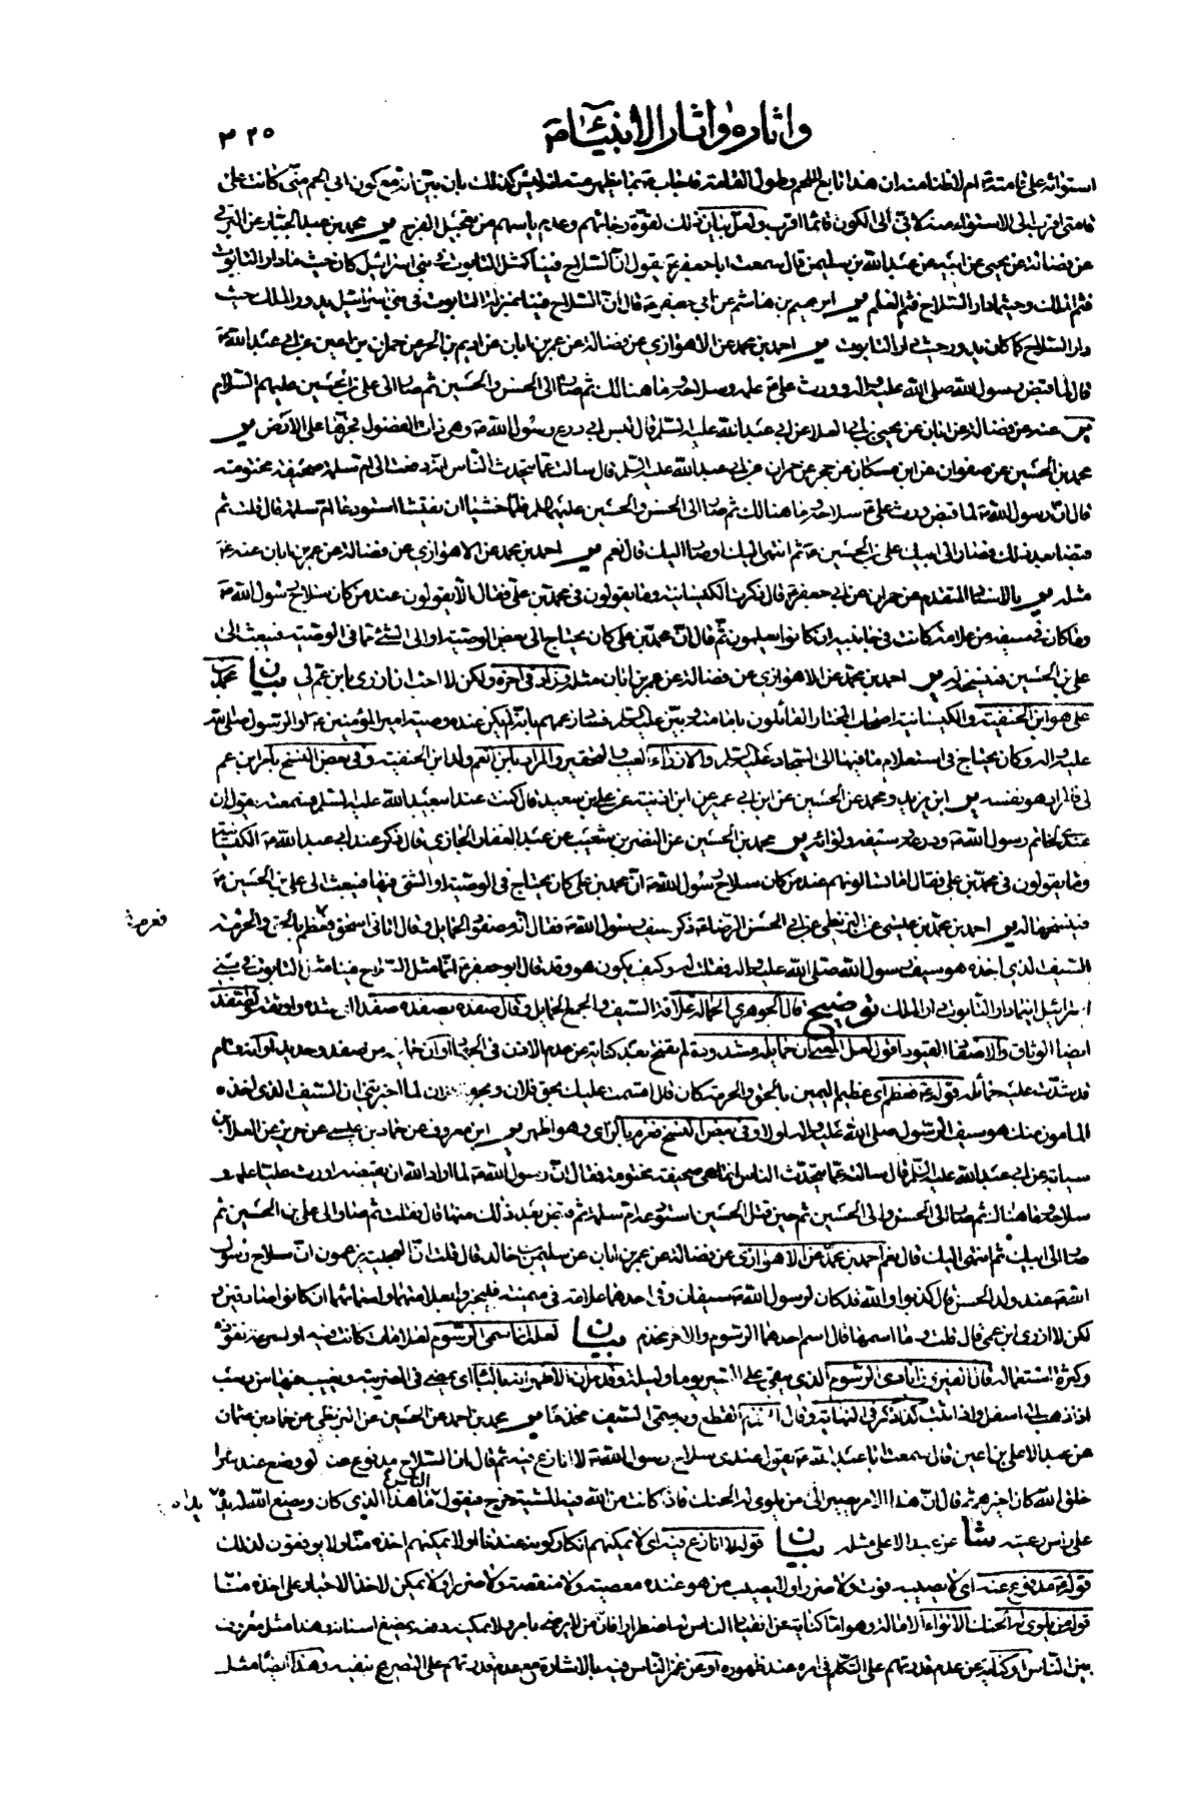 واثاره واثار الأنبياء ٣٢٥
استوائه على قامته ام لا ظنا منه ان هذا تابع اللحم وطول القامة فاجاب بما يظهر منه انه ليس كذلك بان بين انه مع كون ابي الحم مني كانت على
قامتي اقرب الى الاستواء منه لا في الى الكون قائما اقرب ولعل بيان ذلك لقوة رجائهم وعدم ياسهم من تعجيل الفرج ير محمد بن عبد الجبار عن البرقي
عن فضالة عن يحيى عن ابيه عن عبد الله بن سليمن قال سمعت ابا جعفر ع يقول ان السلاح فينا كمثل التابوت في بني اسرائيل كان حيث ما دار التابوت
فثم الملك وحيثما دار السلاح فثم العلم ير ابرهيم بن هاشم عن ابي جعفر ع قال ان السلاح فينا بمنزلة التابوت في بني اسرائيل يدور الملك حيث
دار السلاح كما كان يدور حيث دار التابوت ير احمد بن محمد عن الاهوازي عن فضالة عن عمر بن ابان عن اديم بن الحر عن حمران بن اعين عن ابي عبد الله ع
قال لما قبض رسول الله صلى الله عليه واله ورث علي ع علمه وسلاحه وما هنالك ثم صار الى الحسن والحسين ثم صار الى علي بن الحسين عليهم السلام
ير عنه عن فضالة عن ابان عن يحيى بن ابي العلا عن ابي عبد الله عليه السلم قال لبس ابي درع رسول الله ص وهي ذات الفضول فجرها على الارض ير
محمد بن الحسين عن صفوان عن ابن مسكان عن حجر عن حمران عن ابي عبد الله عليه السلم قال سالته عما يتحدث الناس انه دفعت الى ام سلمة صحيفة مختومة
قال ان رسول الله ص لما قبض ورث علي ع سلاحه وما هنالك ثم صار الى الحسن والحسين عليهما السلم فلما خشيا ان يفتشا استودعا ام سلمة قال قلت ثم
قبضا بعد ذلك فصار الى ابيك علي بن الحسين ع ثم انتهى اليك او صار اليك قال نعم ير احمد بن محمد عن الاهوازي عن فضالة عن عمر بن ابان عنه ع
مثله ير بالاسناد المتقدم عن حمران عن ابي جعفر ع قال ذكرت الكيسانية وما يقولون في محمد بن علي فقال الا يقولون عند من كان سلاح رسول الله ص
وما كان في سيفه من علامة كانت في جانبيه ان كانوا يعلمون ثم قال ان محمد بن علي كان يحتاج الى بعض الوصية او الى الشيء مما في الوصية فيبعث الى
علي بن الحسين فينسخه له ير احمد بن محمد عن الاهوازي عن فضالة عن عمر بن ابان مثله وزاد في اخره ولكن لا احب ان ازري بابن عم لي بيان محمد بن
علي هو ابن الحنفية والكيسانية اصحاب المختار القائلون بامامته وبين عليه السلم فساد زعمهم بانه لم يكن عنده وصية امير المؤمنين ع او الرسول صلى الله
عليه واله وكان يحتاج في استعلام ما فيها الى السجاد عليه السلم والازراء العيب والتحقير والمراد بابن العم ولد ابن الحنفية وفي بعض النسخ بابن عم
لي فالمراد هو نفسه ير ابن يزيد ومحمد عن الحسين عن ابن ابي عمير عن ابن اذينة عن علي بن سعيد قال كنت عند ابي عبد الله عليه السلم فسمعته يقول ان
عندي لخاتم رسول الله ص ودرعه وسيفه ولوائه ير محمد بن الحسين عن النضر بن شعيب عن عبد الغفار الجازي قال ذكر عند ابي عبد الله ع الكيسانية
وما يقولون في محمد بن علي فقال اما تسالونهم عند من كان سلاح رسول الله ص ان محمد بن علي كان يحتاج في الوصية او الشيء فيها فيبعث الى علي بن الحسين ع
فينسخها له ير احمد بن محمد بن عيسى عن البزنطي عن ابي الحسن الرضا ع ذكر سيف رسول الله ص فقال انه مصفود الحمايل وقال اتاني اسحق فعظم بالحق والحرمة
السيف الذي اخذه هو سيف رسول الله صلى الله عليه واله فقلت له وكيف يكون هو وقد قال ابو جعفر ع انما مثل السلاح فينا مثل التابوت في بني
اسرائيل اينما دار التابوت دار الملك توضيح قال الجوهري الحمالة علاقة السيف والجمع الحمايل وقال صفده يصفده صفدا اي شده واوثقه والصفد
ايضا الوثاق والاصفاد القيود اقول لعل المعنى ان حمايله مشدودة لم يفتح بعد كناية عن عدم الاذن في الجهاد او ان حمايله من صفد وحديد او انه قام
قد شدت عليه حمائله قوله ع فعظم اي عظم اليمين بالحق والحرمة كان قال اقسمت عليك بحق فلان وبحرمة فلان لما اخبرتني ان السيف الذي اخذه
المامون منك هو سيف الرسول صلى الله عليه واله اولا وفي بعض النسخ فعزم بالزاي وهو اظهر ير ابن معروف عن حماد بن عيسى عن حريز عن العلا بن
سيابة عن ابي عبد الله عليه السلم قال سالته عما يتحدث الناس انما هي صحيفة مختومة فقال ان رسول الله ص لما اراد الله ان يقبضه اورث عليا علمه و
سلاحه وما هنالك ثم صار الى الحسن والى الحسين ثم حين قتل الحسين استودعه ام سلمة ثم قبض بعد ذلك منها قال فقلت ثم صار الى علي بن الحسين ثم
صار الى ابيك ثم انتهى اليك قال نعم احمد بن محمد عن الاهوازي عن فضالة عن عمر بن ابان عن سليمن بن خالد قال قلت ان العجلية يزعمون ان سلاح رسول
الله ص عند ولد الحسن قال كذبوا والله قد كان لرسول الله ص سيفان وفي احدهما علامة في ميمنته فليخبروا بعلامتهما واسمائهما ان كانوا صادقين و
لكن لا ازري ابن عمي قال قلت وما اسمهما قال اسم احدهما الرسوم والاخر مخذم بيان لعله انما سمي الرسوم لعلامات كانت فيه او لسرعة نفوذه
وكثرة استعماله قال الفيروزابادي الرسوم الذي يبقى على السير يوما وليلة وقد مر ان الاظهر انه بالباء اي يمضي في الضريبة ويغيب فيها من رسب
اذا ذهب الى اسفل واذا ثبت كذا ذكر في النهاية وقال الخذم القطع وبه سمي السيف مخذما ير محمد بن احمد عن الحسين عن البزنطي عن حماد بن عثمان
عن عبد الاعلى بن اعين قال سمعت ابا عبد الله ع يقول عندي سلاح رسول الله ص لا انازع فيه ثم قال ان السلاح مدفوع عنه لو وضع عند شر
خلق الله كان اخيرهم ثم قال ان هذا الامر يصير الى من يلوى له الحنك فاذا كانت من الله فيه المشية خرج فيقول الناس ما هذا الذي كان ويضع الله له يدا
على راس رعيته شا عن عبد الاعلى مثله بيان قوله لا انازع فيه اي لا يمكنهم انكار كونه عندنا او لا يمكنهم اخذه منا ولا يوفقون لذلك
قوله ع مدفوع عنه اي لا يصيبه فوت ولا ضرر او لا يصيب من هو عنده معصية ولا منقصة ولا ضرر او لا يمكن لاحد الاجبار على اخذه منا
قوله من يلوى له الحنك الالواء الامالة وهو اما كناية عن انقياد الناس له اضطرارا فان من لا يرضى بامر ولا يمكنه دفعه يمضغ اسنانه هذا مثل معروف
بين الناس او كناية عن عدم قدرتهم على التكلم في امره عند ظهوره او عن غمز الناس فيه بالاشارة مع عدم قدرتهم على التصريح بنفيه وهذا ايضا مثل